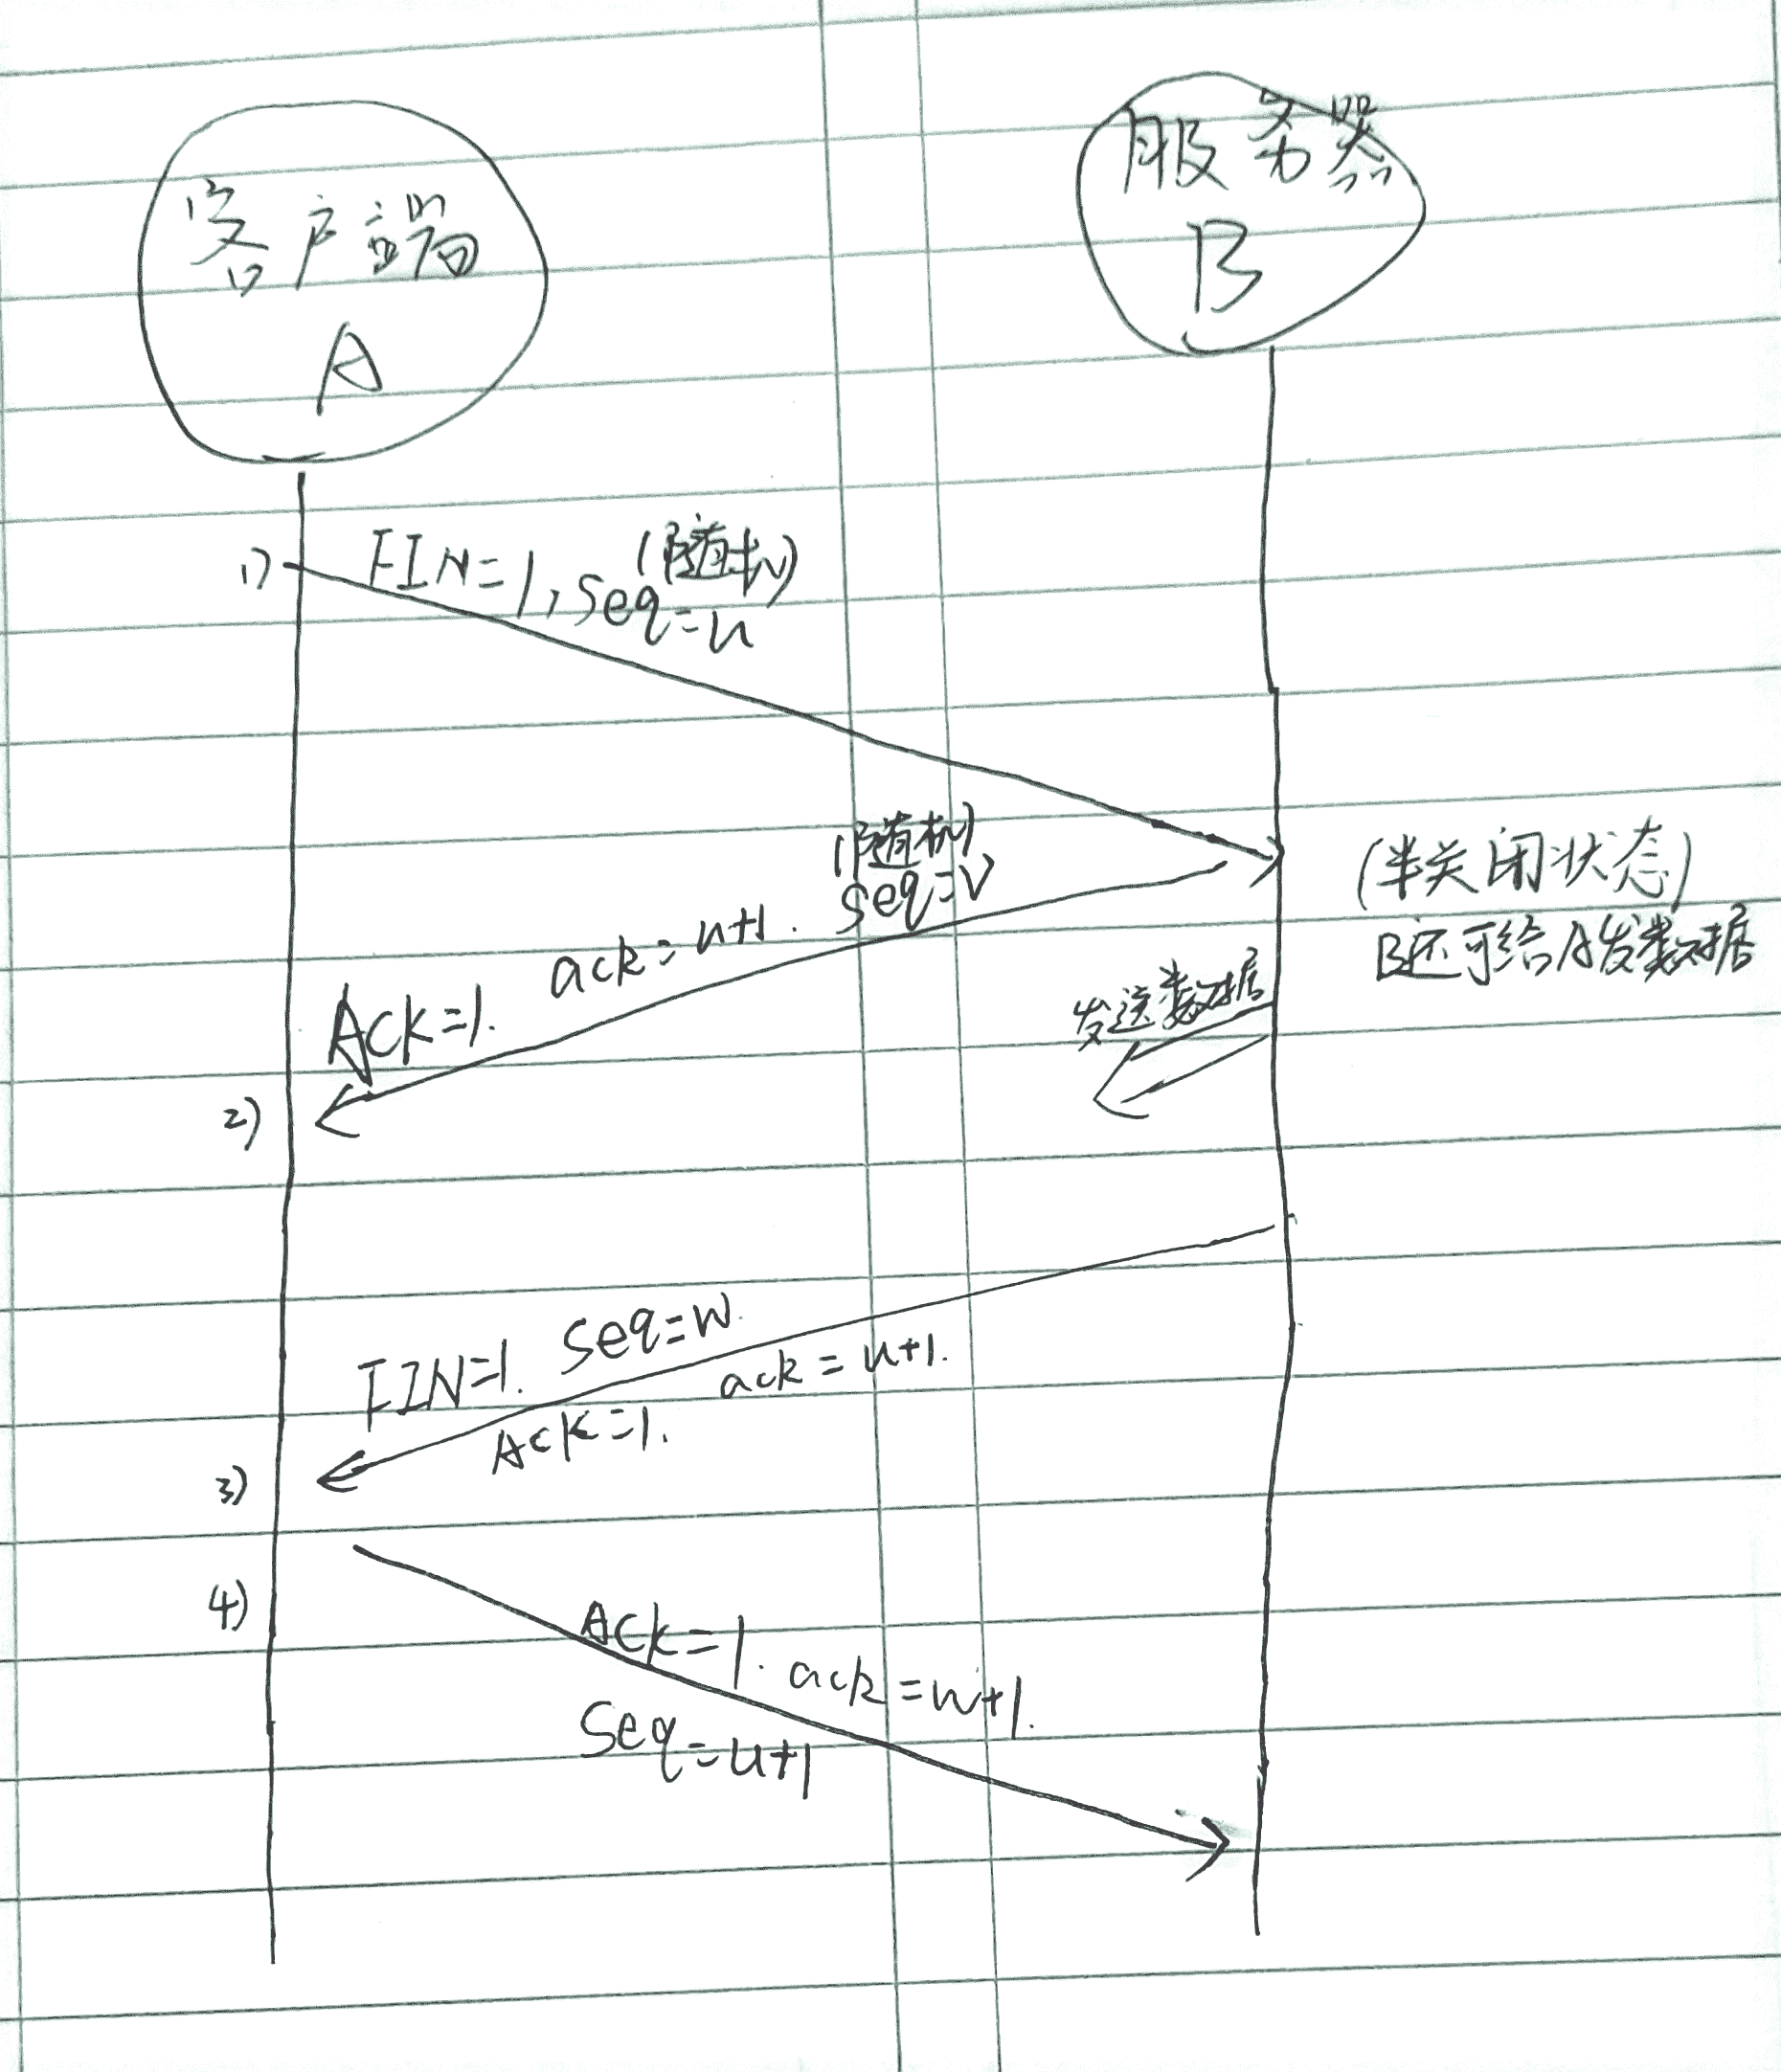 客户端
A
服务器
B
1)
(随机)
FIN=1, seq=u
(随机)
seq=v
ack=u+1.
ACK=1.
2)
(半关闭状态)
B还可给A发数据
发送数据
FIN=1. seq=w.
ACK=1. ack=u+1.
3)
4)
ACK=1. ack=w+1.
seq=u+1